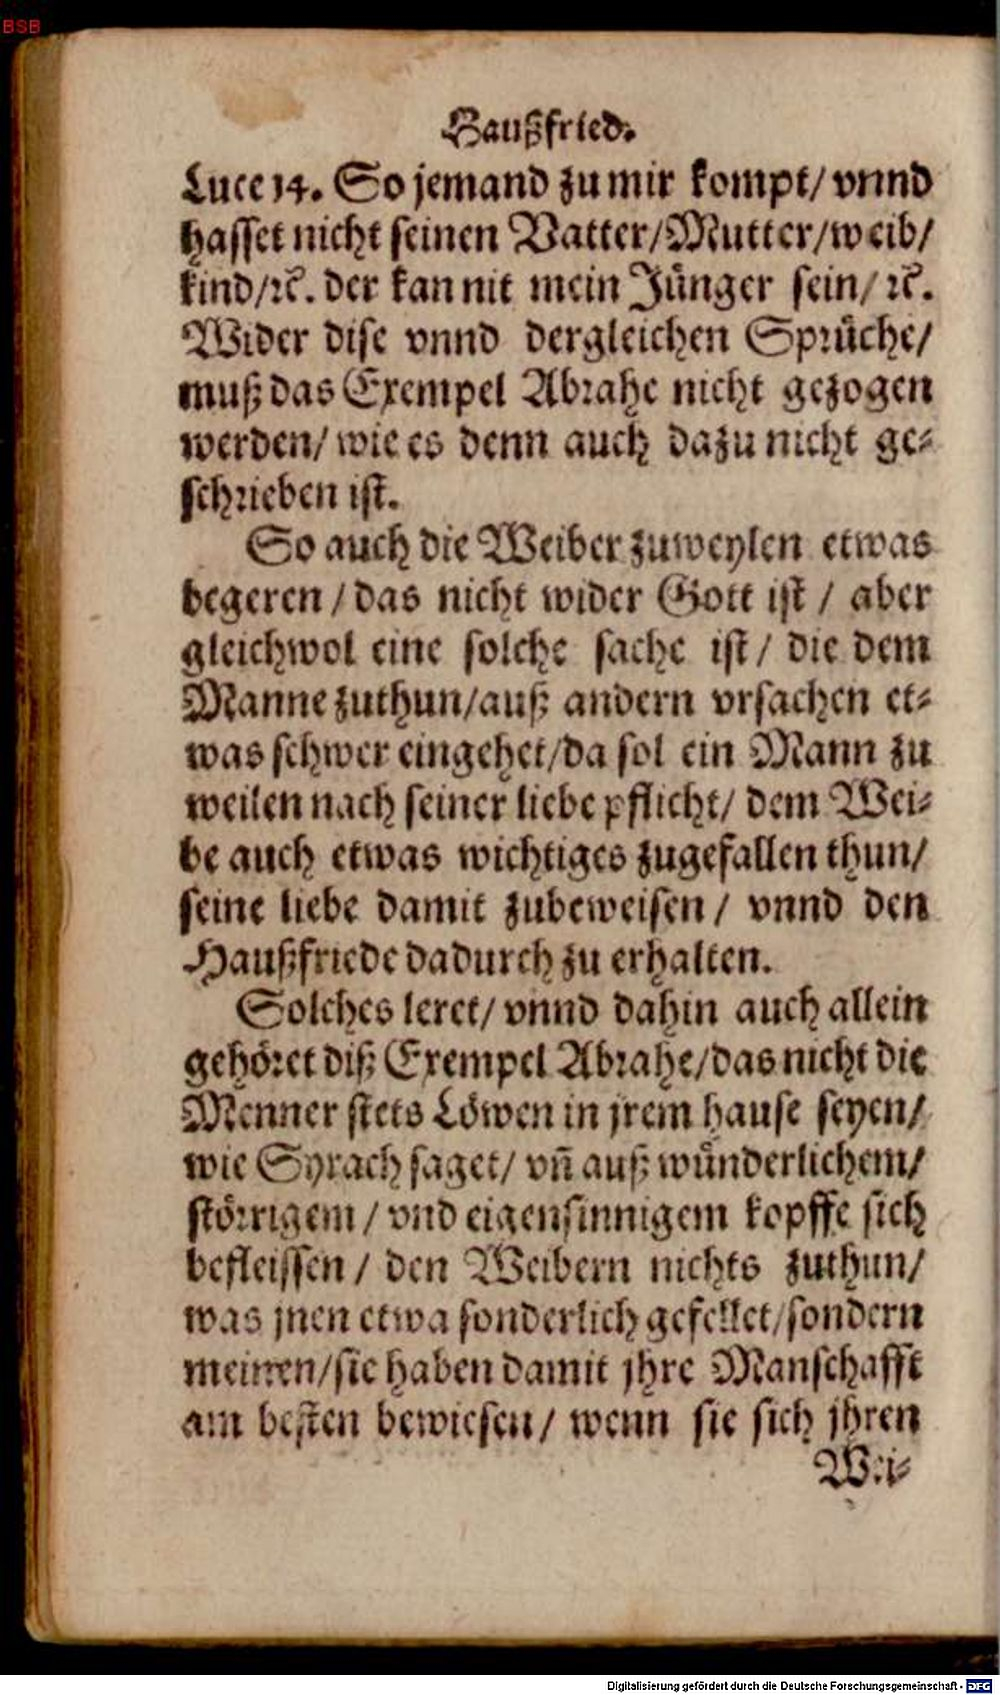 BSB
Haußfried.
Luce 14. So jemand zu mir kompt/ vnnd
hasset nicht seinen Vatter/Mutter/weib/
kind/ꝛc̃. der kan nit mein Jünger sein/ ꝛc̃.
Wider dise vnnd dergleichen Sprüche/
muß das Exempel Abrahe nicht gezogen
werden/ wie es denn auch dazu nicht ge-
schrieben ist.
So auch die Weiber zuweylen etwas
begeren / das nicht wider Gott ist / aber
gleichwol eine solche sache ist / die dem
Manne zuthun/auß andern vrsachen et-
was schwer eingehet/da sol ein Mann zu
weilen nach seiner liebe pflicht/ dem Wei-
be auch etwas wichtiges zugefallen thun/
seine liebe damit zubeweisen / vnnd den
Haußfriede dadurch zu erhalten.
Solches leret/ vnnd dahin auch allein
gehöret diß Exempel Abrahe/das nicht die
Menner stets Löwen in jrem hause seyen/
wie Syrach saget/ vn̄ auß wünderlichem/
störrigem / vnd eigensinnigem kopffe sich
befleissen / den Weibern nichts zuthun/
was jnen etwa sonderlich gefellet/sondern
meinen/sie haben damit jhre Manschafft
am besten bewiesen/ wenn sie sich jhren
Wei-
Digitalisierung gefördert durch die Deutsche Forschungsgemeinschaft - DFG